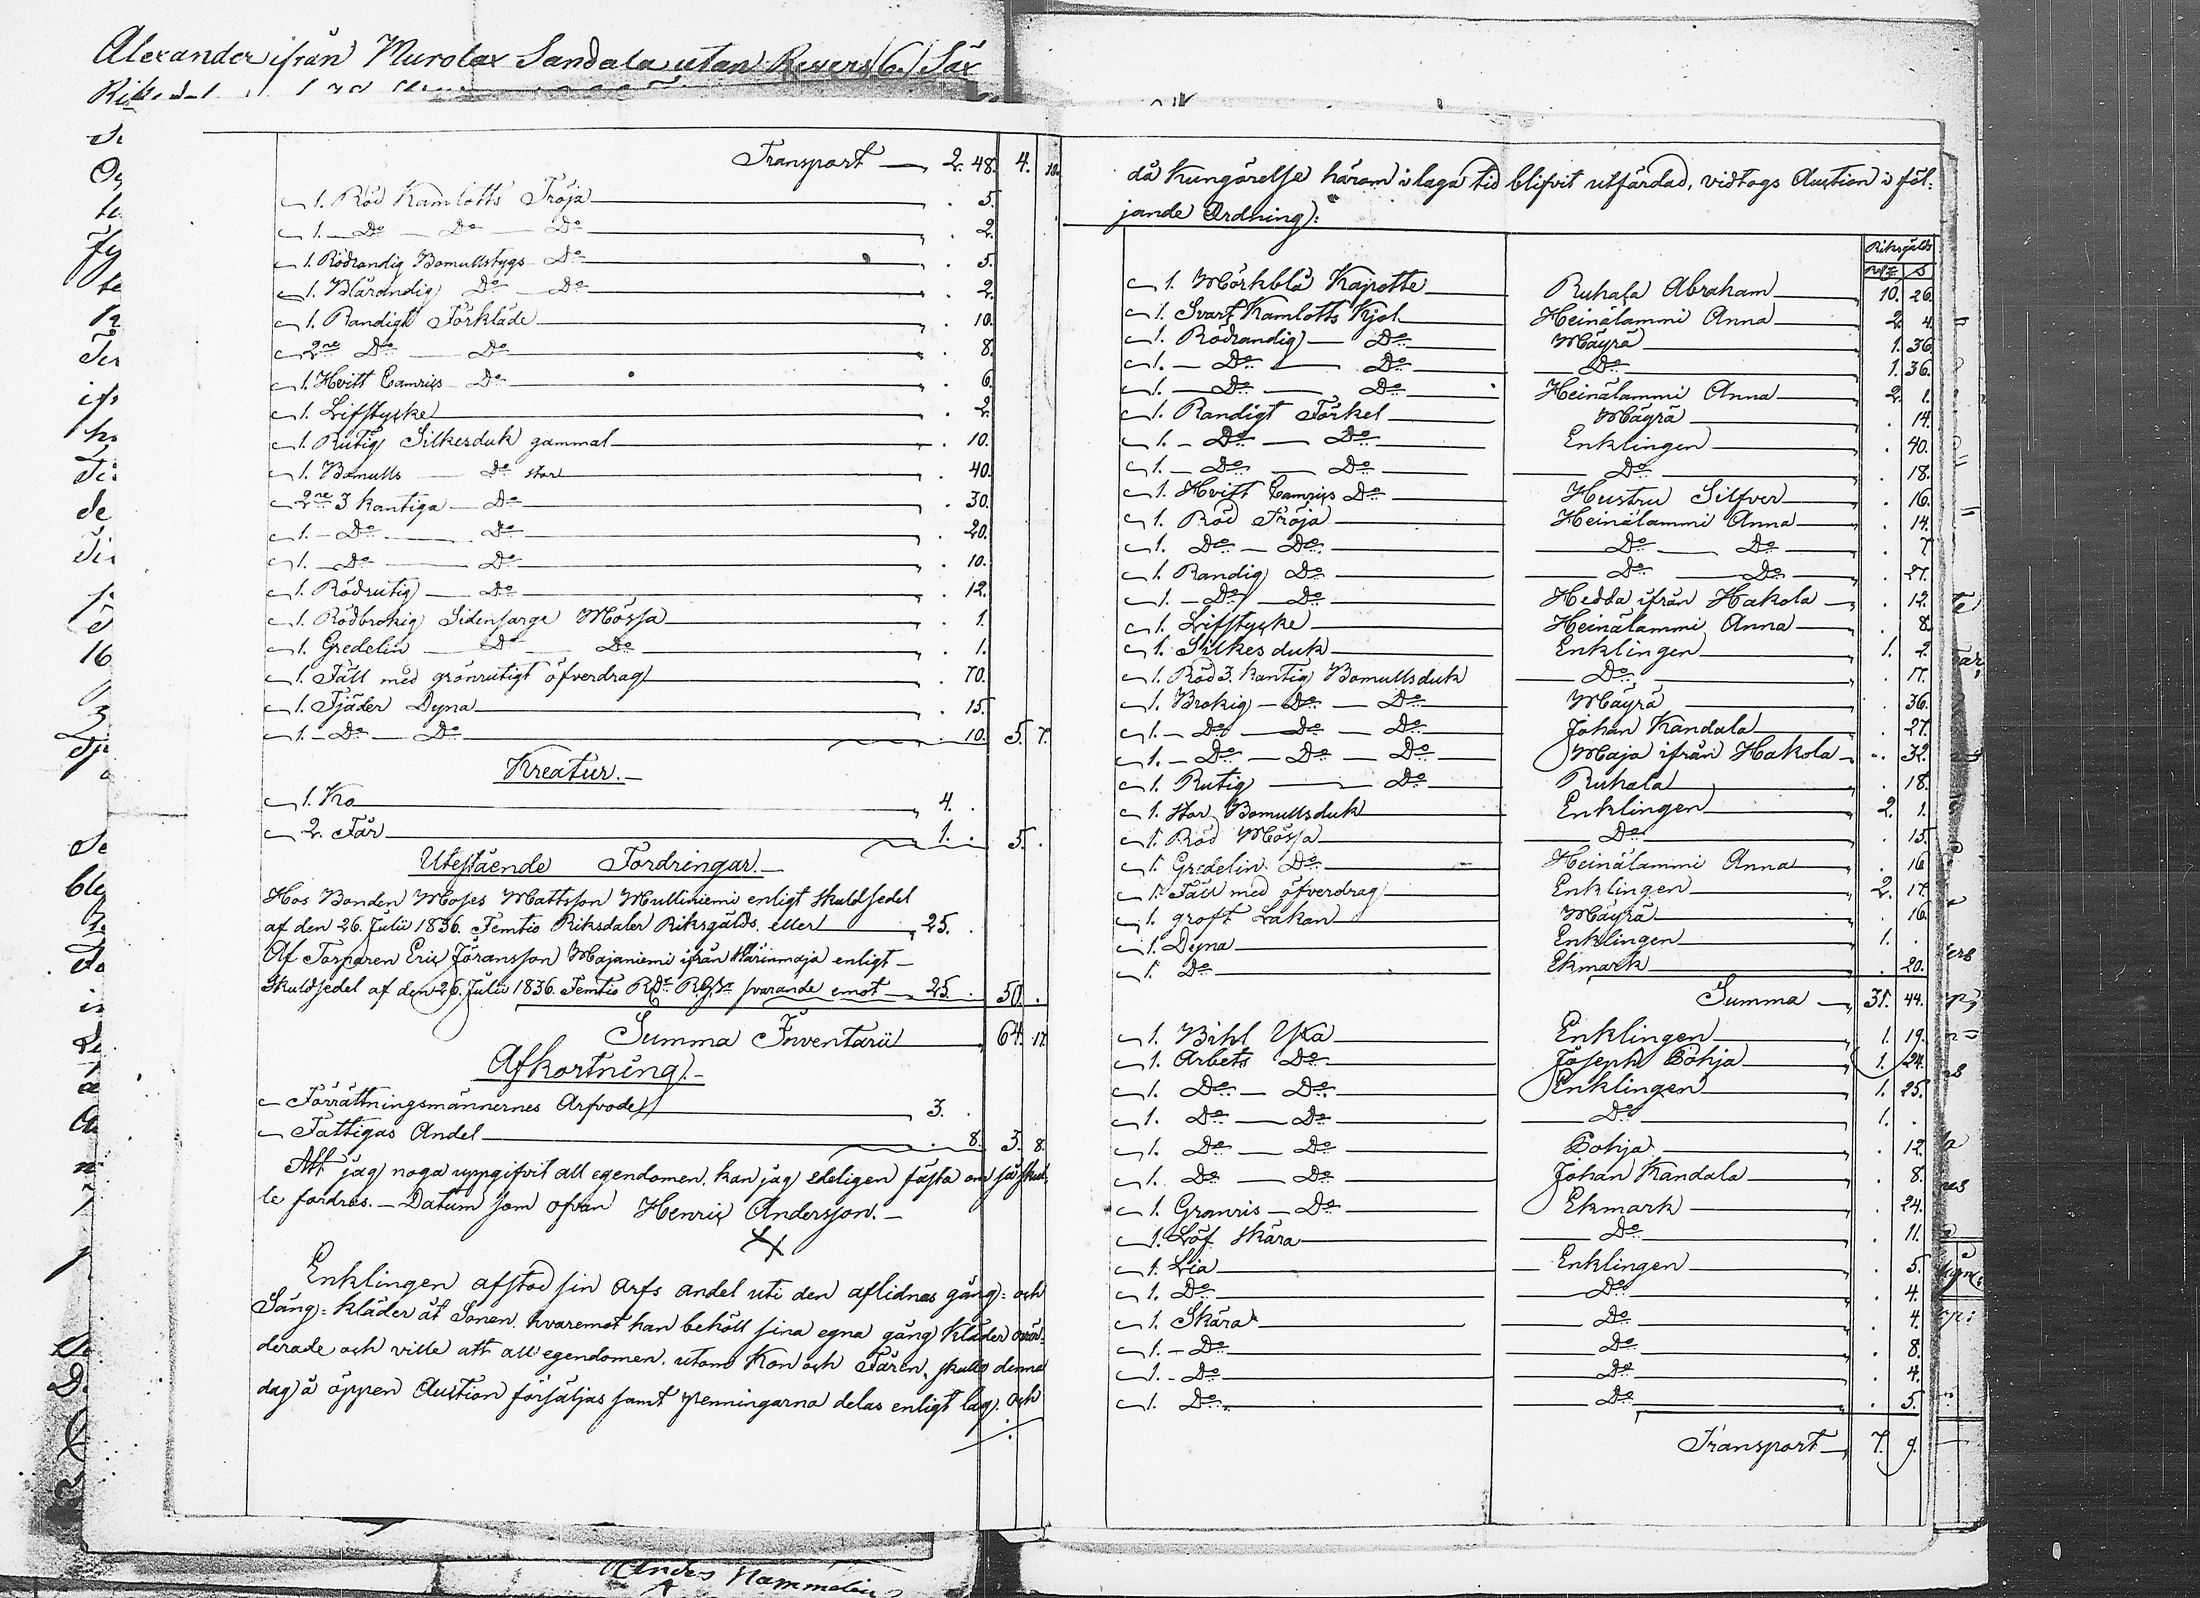 Alexander ifrån Murolax Sandala utan Revers 6. Säx
Transport — 2. 48. 4. 10.
1. Röd Kamlotts Tröja . 5.
1. — Do — Do — Do . 2.
1. Rödrandig Bomullstygs Do . 5.
1. Blårandig Do — Do . 2.
1. Randigt Förkläde . 10.
2ne Do — Do . 8.
1. Hvitt Camrijs Do . 6.
1. Lifstycke . 2.
1. Rutig Silkesduk gammal . 10.
1. Bomulls — Do stor . 40.
2ne 3 kantiga — Do . 30.
1. — Do — Do . 20.
1. — Do — Do . 10.
1. Rödrutig — Do . 12.
1. Rödbrokig Sidensarge Mössa . 1.
1. Gredelin — Do — Do . 1.
1. Fäll med grönrutigt öfverdrag . 70.
1. Fjäder Dyna . 15.
1. — Do — Do . 10. 5. 7.
Kreatur. —
1. Ko 4. .
2. Får 1. . 5. .
Utestående Fordringar. —
Hos Bonden Moses Mattsson Mulliniemi enligt Skuldsedel
af den 26. Julii 1836. Femtio Riksdaler Riksgälds. eller 25. .
Af Torparen Eric Jöransson Majaniemi ifrån Härinmaja enligt —
Skuldsedel af den 26. Julii 1836. Femtio RDr RGds svarande emot — 25. . 50. .
Summa Inventarii 64. 17.
Afkortning. —
Förrättningsmännernes Arfvode 3. .
Fattigas Andel . 8. 3. 8.
Att jag noga uppgifvit all egendomen, kan jag edeligen fästa om så skul-
le fordras. — Datum som ofvan Henric Andersson. —
Enklingen afstod sin arfs andel uti den aflidnas gång= och
Säng= kläder åt Sonen. hvaremot han behöll sina egna gång kläder ovär-
derade och ville att all egendomen. utom Kon och Fåren, skulle denna
dag å öppen Auction försäljas samt penningarna delas enligt lag, och
då Kungörelse härom i laga tid blifvit utfärdad, vidtogs Auction i föl-
jande Ordning:
Riksgälds
Rdr s
1. Mörkblå Kapotte Ruhala Abraham 10. 26.
1. Svart Kamlotts Kjol Heinälammi Anna 2. 4.
1. Rödrandig — Do Mäyrä 1. 36.
1. — Do — Do Do 1. 36.
1. — Do — Do Heinälammi Anna 2. 1.
1. Randigt Förkel Mäyrä . 14.
1. — Do — Do Enklingen . 40.
1. — Do — Do Do . 18.
1. Hvitt Camrijs Do Hustru Silfver . 16.
1. Röd Tröja Heinälammi Anna . 14.
1. Do — Do Do — Do . 7.
1. Randig Do Do — Do . 27.
1. — Do — Do Hedda ifrån Hakola . 12.
1. Lifstycke Heinälammi Anna . 8.
1. Silkesduk Enklingen 1. 2.
1. Röd 3. kantig Bomullsduk Do . 17.
1. Brokig — Do — Do Mäyrä . 36.
1. — Do — Do — Do Johan Kandala . 27.
1. — Do — Do — Do Maja ifrån Hakola . 32.
1. Rutig — Do Ruhala . 18.
1. stor Bomullsduk Enklingen 2. 1.
1. Röd Mössa Do . 15.
1. Gredelin Do Heinälammi Anna . 16.
1. Fäll med öfverdrag Enklingen 2. 17.
1. groft Lakan Mäyrä . 16.
1. Dyna Enklingen 1. .
1. Do Ekmark . 20.
Summa 31. 44.
1. Bihl Yxa Enklingen 1. 19.
1. Arbets Do Joseph Pohja 1. 24.
1. Do — Do Enklingen 1. 25.
1. Do — Do Do 1. .
1. Do — Do Pohja . 12.
1. Do — Do Johan Kandala . 8.
1. Granris — Do Ekmark . 24.
1. Löf Skära Do . 11.
1. Lia Enklingen . 5.
1. Do Do . 4.
1. Skära Do . 4.
1. — Do Do . 8.
1. — Do Do . 4.
1. Do Do . 5.
Transport 7. 9.